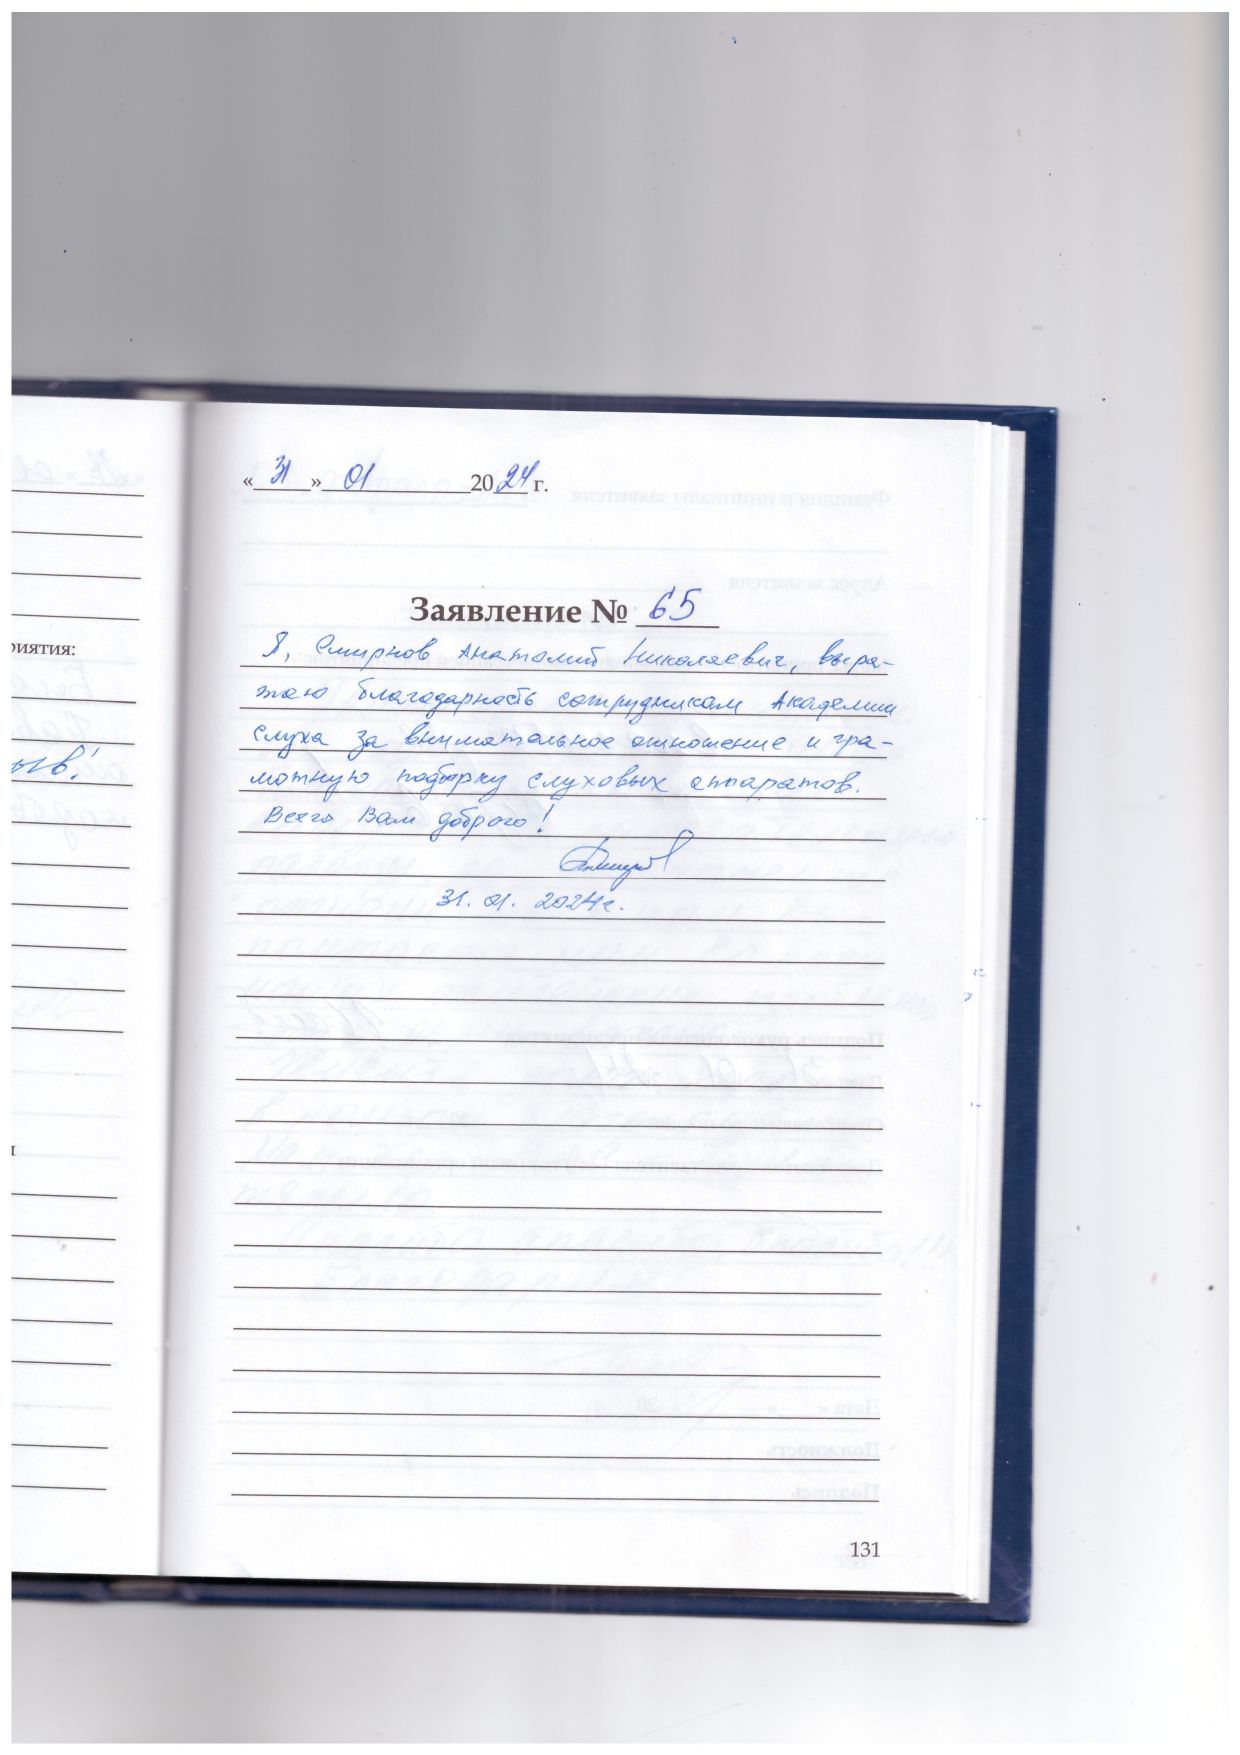 « 31 » 01 2024 г.
Заявление № 65
Я, Смирнов Анатолий Николаевич, выра-
жаю благодарность сотрудникам Академии
слуха за внимательное отношение и гра-
мотную подборку слуховых аппаратов.
Всего Вам доброго!
31. 01. 2024г.
риятия:
ыв!
131